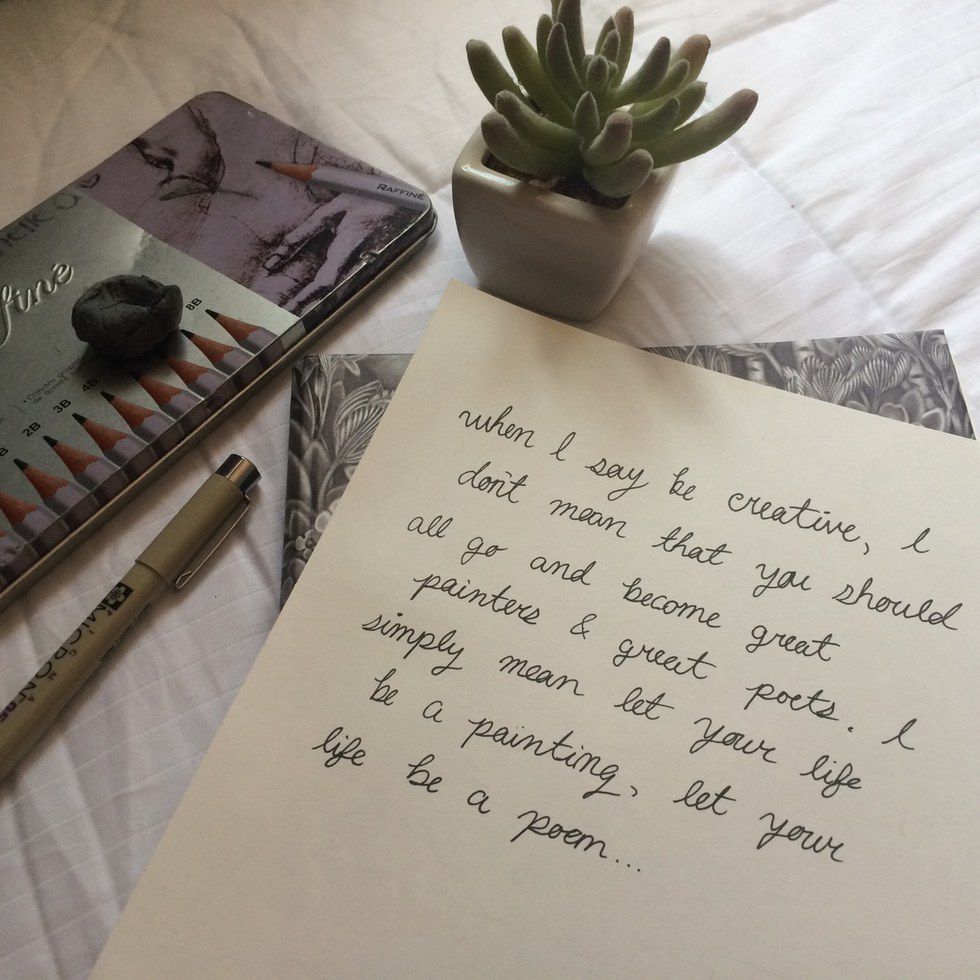 RAFFINÉ
fine
8B
4B
3B
2B
B
MICRON
when I say be creative, I
don't mean that you should
all go and become great
painters & great poets. I
simply mean let your life
be a painting, let your
life be a poem...